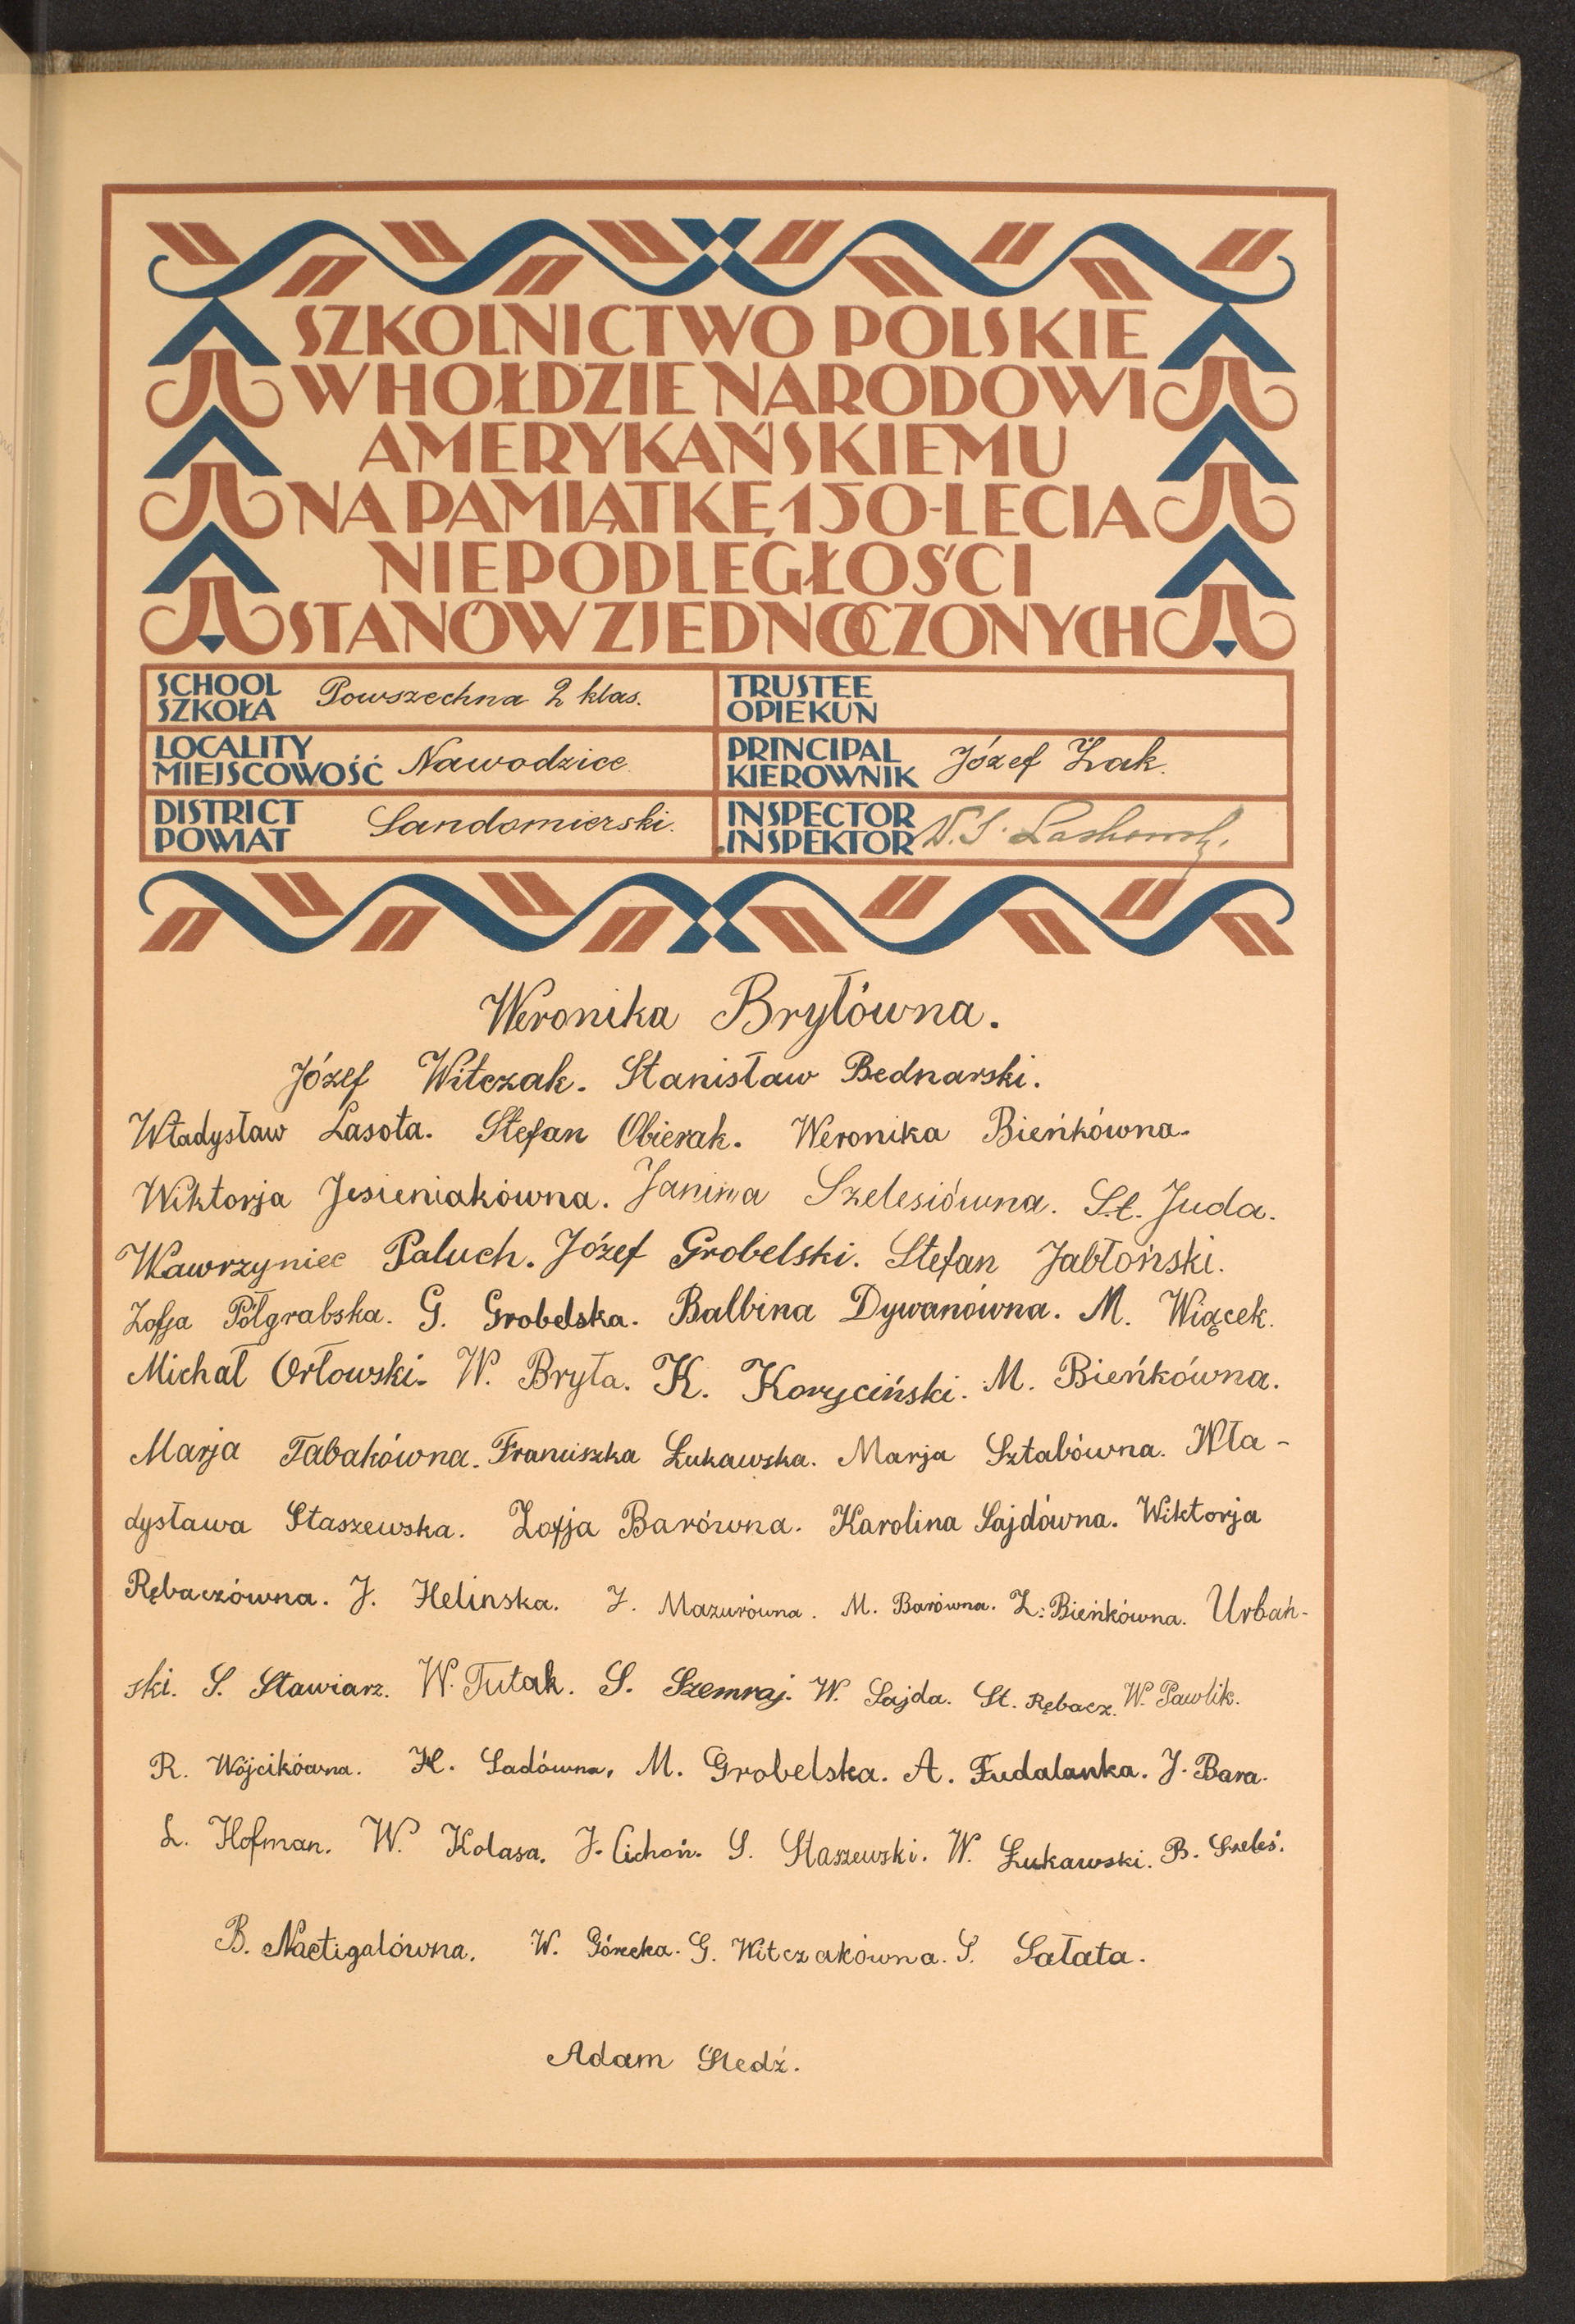 SZKOLNICTWO POLSKIE
W HOŁDZIE NARODOWI
AMERYKAŃSKIEMU
NA PAMIĄTKĘ 150-LECIA
NIEPODLEGŁOŚCI
STANÓW ZJEDNOCZONYCH
SCHOOL SZKOŁA Powszechna 2 klas.
TRUSTEE OPIEKUN
LOCALITY MIEJSCOWOŚĆ Nawodzice
PRINCIPAL KIEROWNIK Józef Żak.
DISTRICT POWIAT Sandomierski.
INSPECTOR INSPEKTOR
Weronika Bryłówna.
Józef Witczak. Stanisław Bednarski.
Władysław Lasota. Stefan Obierak. Weronika Bieńkówna.
Wiktorja Jesieniakówna. Janina Szelesiówna. St. Juda.
Wawrzyniec Paluch. Józef Grobelski. Stefan Jabłoński.
Zofja Półgrabska. G. Grobelska. Balbina Dywanówna. M. Wiącek.
Michał Orłowski. W. Bryła. K. Koryciński. M. Bieńkówna.
Marja Tabakówna. Franciszka Łukawska. Marja Sztabówna. Wła-
dysława Staszewska. Zofja Barówna. Karolina Sajdówna. Wiktorja
Rębaczówna. J. Helinska. J. Mazurówna. M. Barówna. Z. Bieńkówna. Urbań-
ski. S. Stawiarz. W. Tutak. S. Szemraj. W. Sajda. St. Rębacz. W. Pawlik.
R. Wójcikówna. H. Sadówna. M. Grobelska. A. Fudalanka. J. Bara.
L. Hofman. W. Kolasa. J. Cichoń. S. Staszewski. W. Łukawski. B. Szeleś.
B. Nactigalówna. W. Górecka. G. Witczakówna. S. Sałata.
Adam Śledź.